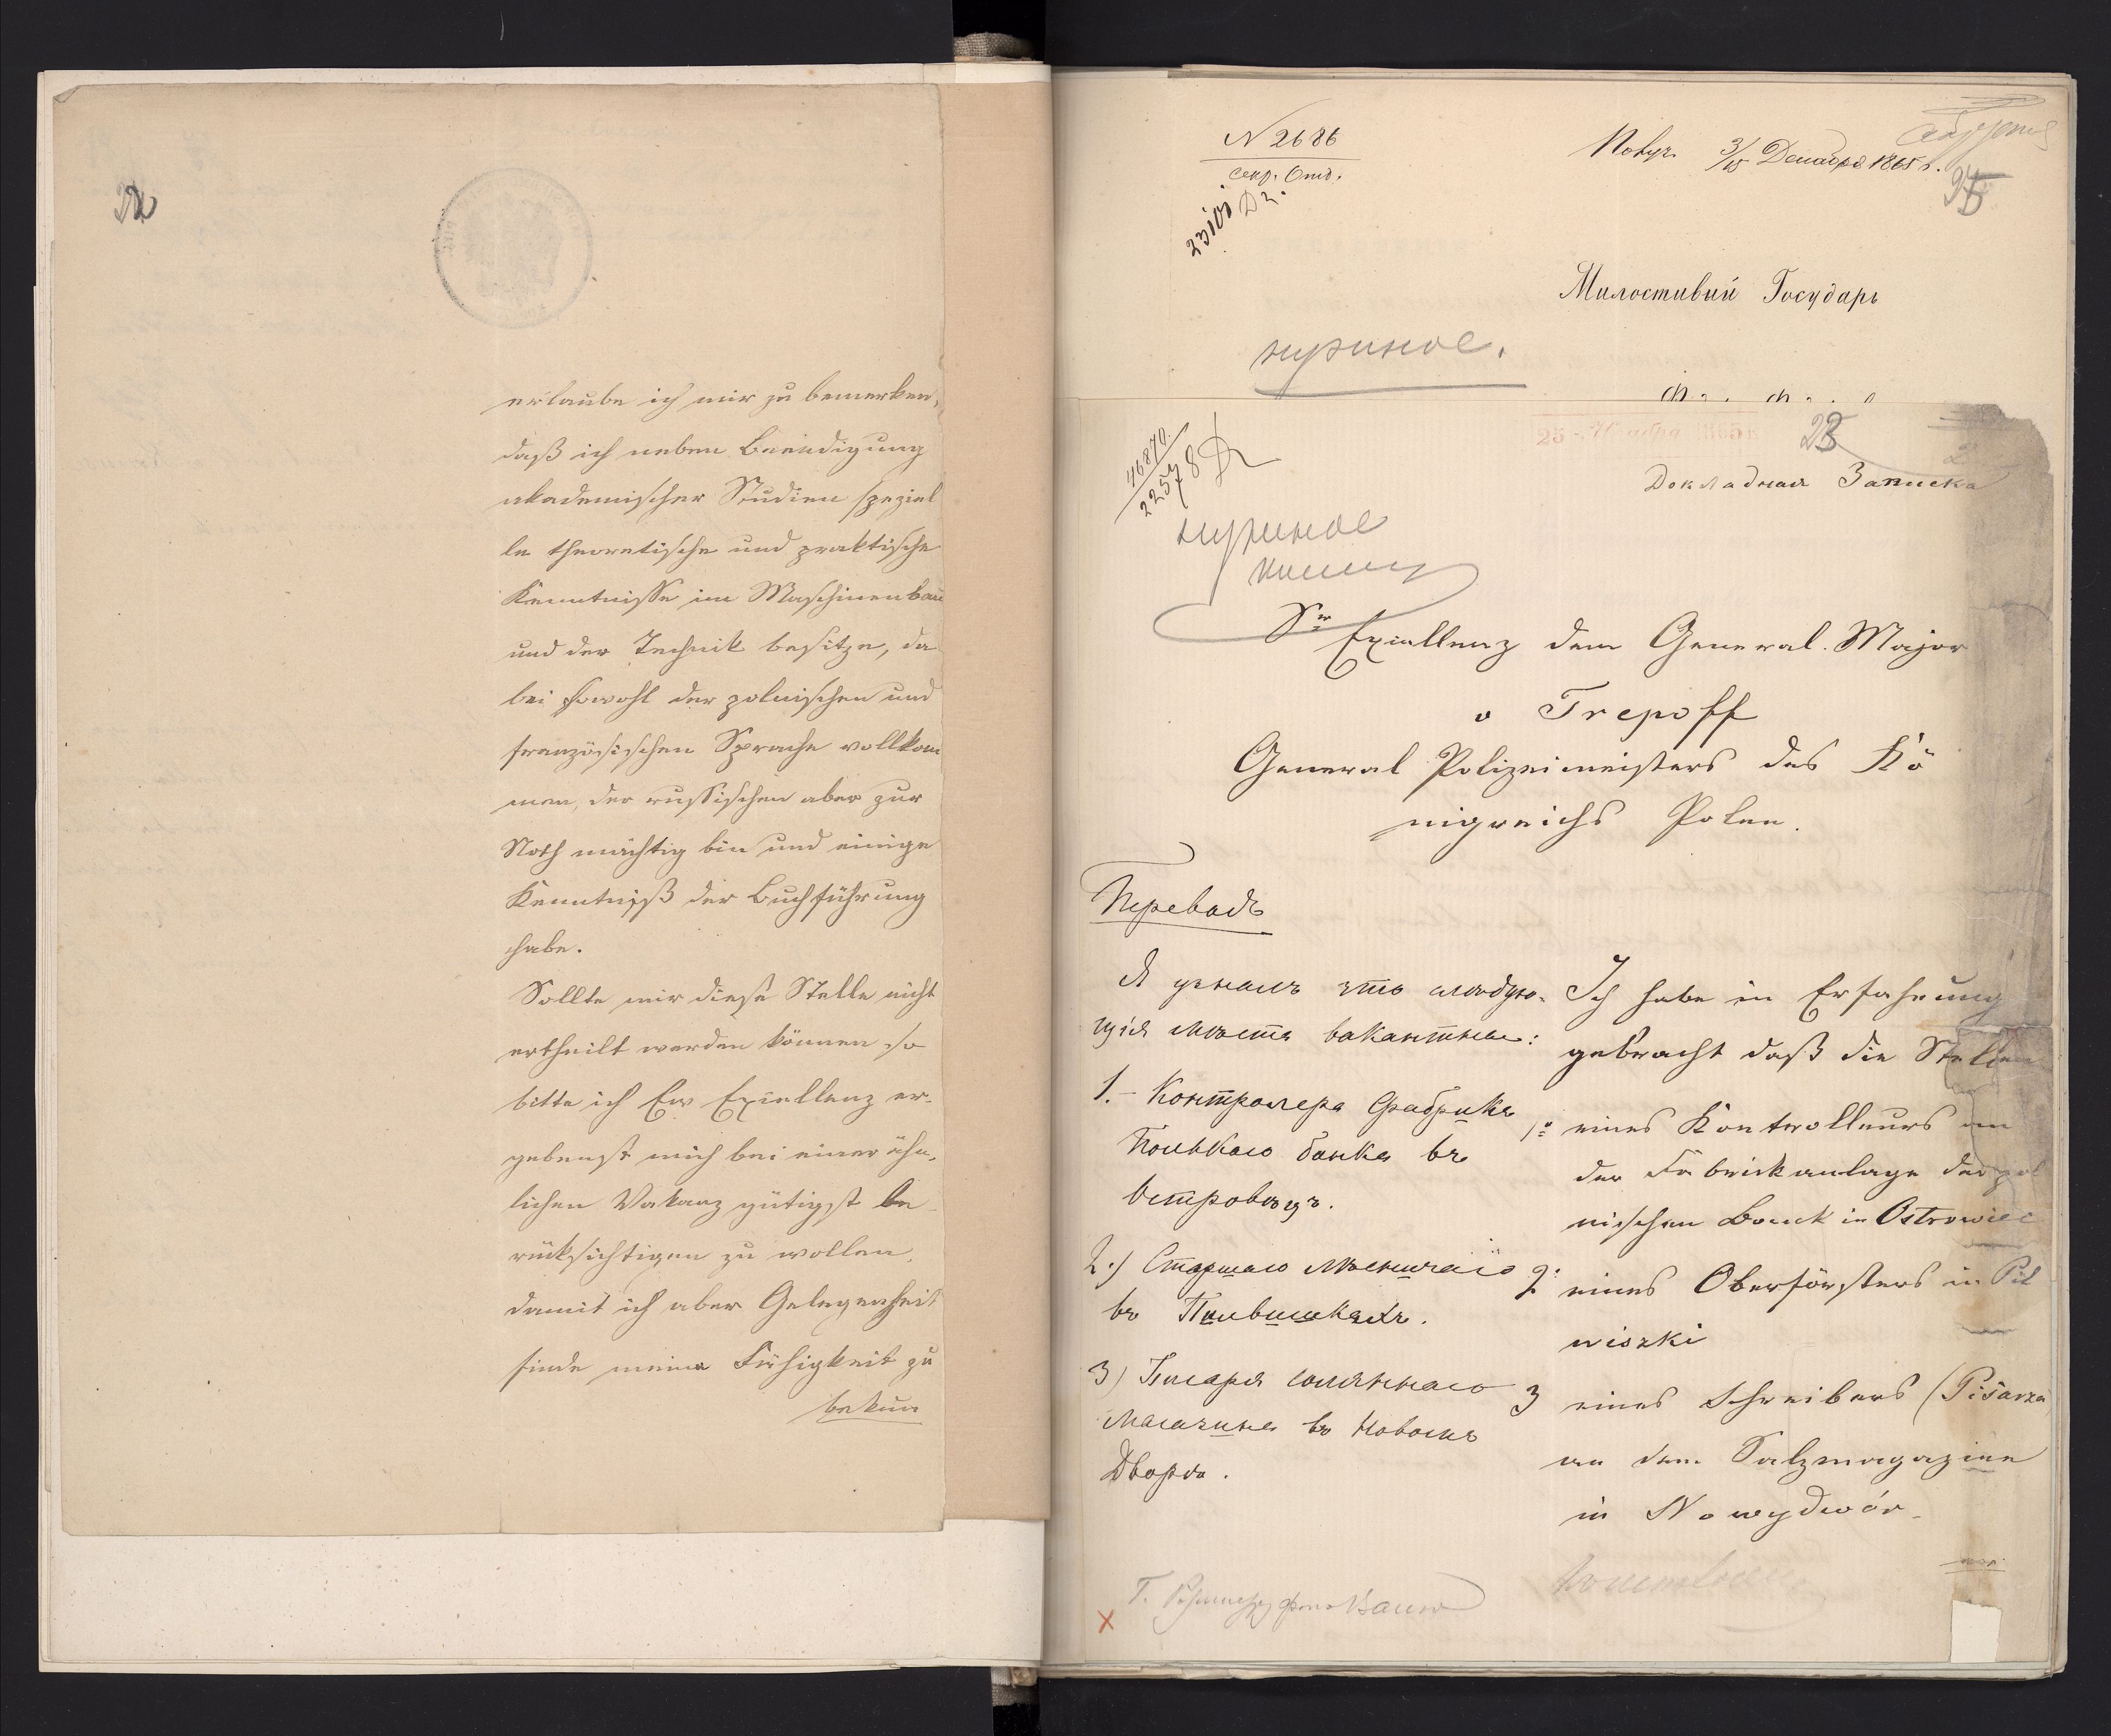 erlaube ich mir zu bemerken,
daß ich neben Beendigung
akademischer Studien speziel
le theoretische und praktische
Kenntnisse im Maschinenbau
und der Technik besitze, da
bei sowohl der polnischen und
französischen Sprache vollkom
men, der russischen aber zur
Noth mächtig bin und einige
Kenntniß der Buchführung
habe.
Sollte mir diese Stelle nicht
ertheilt werden können so
bitte ich Ew Exiellenz er-
gebenst mich bei einer ähn-
lichen Vakanz gütigst be-
rücksichtigen zu wollen,
damit ich aber Gelegenheit
finde meine Fähigkeit zu
bekun
N 2686
секр. Отд.
3/15 Декабря 1865 г.
Милостивый Государь
нужное.
25 Ноября 1865 г.
23
2
Докладная Записка
46870
22578
нужное
Sr Exiellenz dem General. Major
v Trepoff
General Polizeimeisters des Kö
nigreichs Polen.
Переводъ
Я узналъ что слѣдую-
щія мѣста вакантные:
1.- Контролера Фабрики
Польскаго банка въ
Островцѣ.
2.) Старшаго лѣсничаго
въ Пильвишкахъ.
3) Писаря солянаго
магазина въ Новомъ
Дворѣ.
Ich habe in Erfahrung
gebracht daß die Stellen
1o eines Kontrolleurs an
der Fabrickanlage der pol
nischen Banck in Ostrowiec
2. eines Oberförsters in Pil
wiszki
3 eines Schreibers (Pisarza
an dem Salzmagazine
in Nowydwór